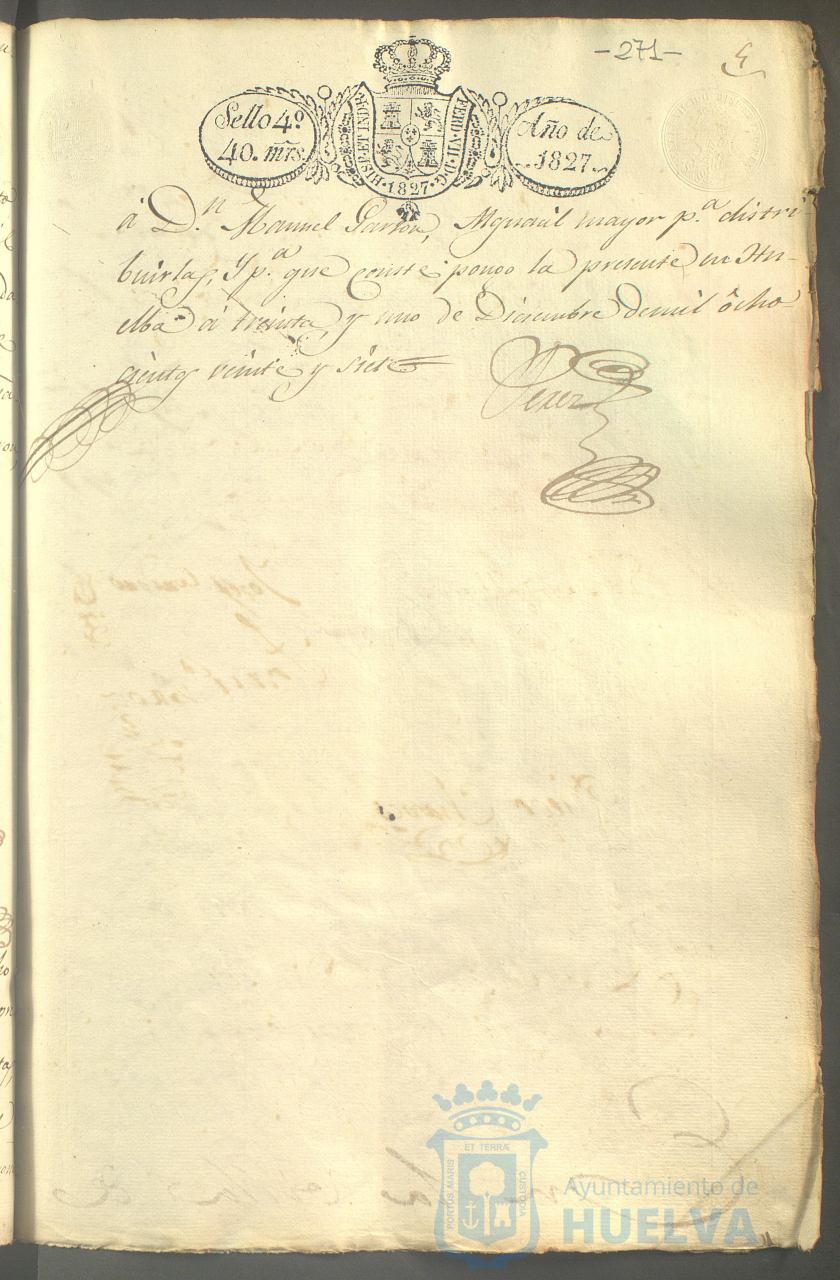 -271-
Sello 4º
40. mrs
HISP. ET IND. R.
FERD. VII. D. G.
·1827·
Año de
1827.
á D.n Manuel Garzon, Alguacil mayor p.a distri-
buirlas, Y p.a que conste pongo la presente en Hu-
elba á treinta, y uno de Diciembre de mil ôcho-
cientos veinte y siete
Perez
PORTUS MARIS
ET TERRÆ
CUSTODIA
Ayuntamiento de
HUELVA